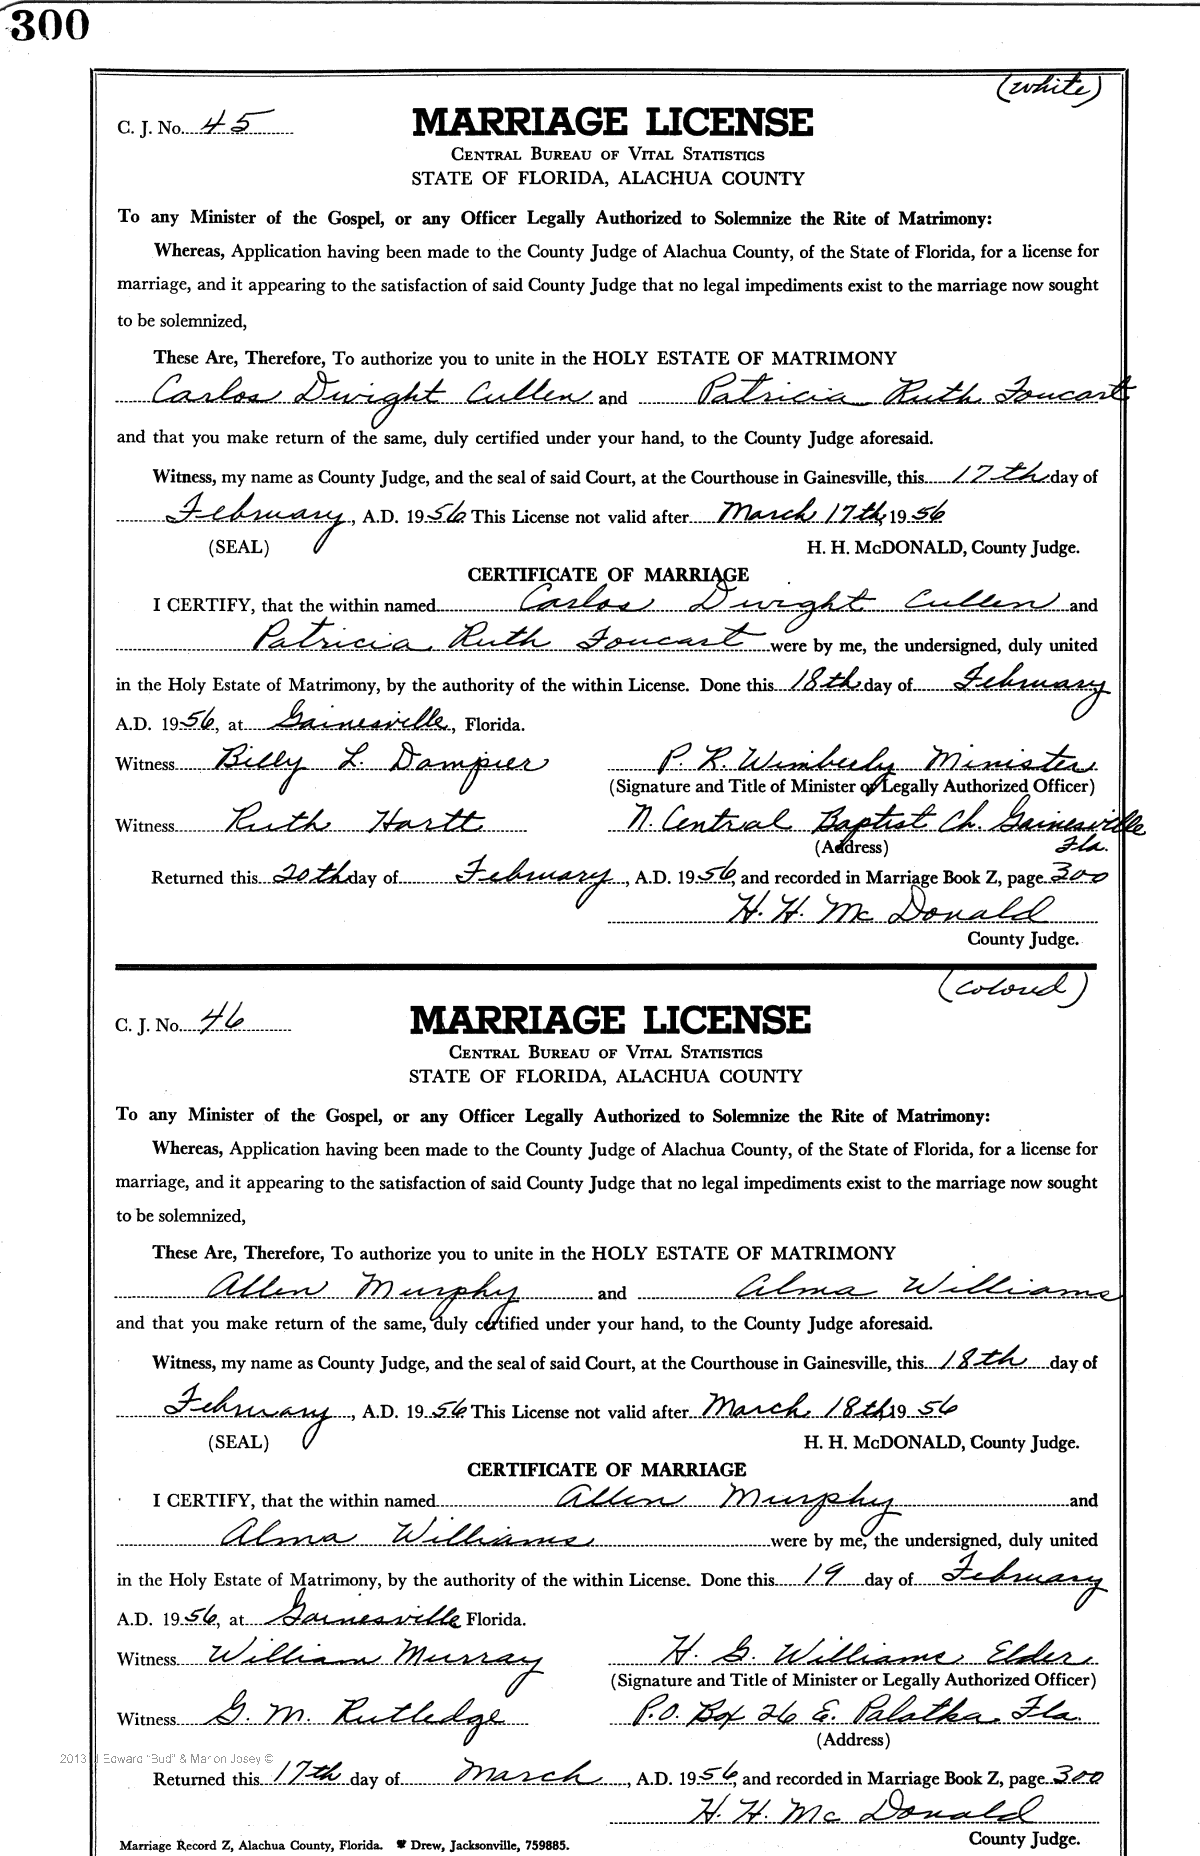 300
(white)
C. J. No. 45
MARRIAGE LICENSE
CENTRAL BUREAU OF VITAL STATISTICS
STATE OF FLORIDA, ALACHUA COUNTY
To any Minister of the Gospel, or any Officer Legally Authorized to Solemnize the Rite of Matrimony:
Whereas, Application having been made to the County Judge of Alachua County, of the State of Florida, for a license for
marriage, and it appearing to the satisfaction of said County Judge that no legal impediments exist to the marriage now sought
to be solemnized,
These Are, Therefore, To authorize you to unite in the HOLY ESTATE OF MATRIMONY
Carlos Dwight Cullen and Patricia Ruth Foucart
and that you make return of the same, duly certified under your hand, to the County Judge aforesaid.
Witness, my name as County Judge, and the seal of said Court, at the Courthouse in Gainesville, this 17th day of
February, A.D. 1956 This License not valid after March 17th, 1956
(SEAL) H. H. McDONALD, County Judge.
CERTIFICATE OF MARRIAGE
I CERTIFY, that the within named Carlos Dwight Cullen and
Patricia Ruth Foucart were by me, the undersigned, duly united
in the Holy Estate of Matrimony, by the authority of the within License. Done this 18th day of February
A.D. 1956, at Gainesville, Florida.
Witness Billy L. Dampier P. R. Wimberly Minister
(Signature and Title of Minister or Legally Authorized Officer)
Witness Ruth Hartt N. Central Baptist Ch. Gainesville
(Address) Fla.
Returned this 20th day of February, A.D. 1956, and recorded in Marriage Book Z, page 300
H. H. McDonald
County Judge.
(colored)
C. J. No. 46
MARRIAGE LICENSE
CENTRAL BUREAU OF VITAL STATISTICS
STATE OF FLORIDA, ALACHUA COUNTY
To any Minister of the Gospel, or any Officer Legally Authorized to Solemnize the Rite of Matrimony:
Whereas, Application having been made to the County Judge of Alachua County, of the State of Florida, for a license for
marriage, and it appearing to the satisfaction of said County Judge that no legal impediments exist to the marriage now sought
to be solemnized,
These Are, Therefore, To authorize you to unite in the HOLY ESTATE OF MATRIMONY
Allen Murphy and Alma Williams
and that you make return of the same, duly certified under your hand, to the County Judge aforesaid.
Witness, my name as County Judge, and the seal of said Court, at the Courthouse in Gainesville, this 18th day of
February, A.D. 1956 This License not valid after March 18th, 1956
(SEAL) H. H. McDONALD, County Judge.
CERTIFICATE OF MARRIAGE
I CERTIFY, that the within named Allen Murphy and
Alma Williams were by me, the undersigned, duly united
in the Holy Estate of Matrimony, by the authority of the within License. Done this 19 day of February
A.D. 1956, at Gainesville Florida.
Witness William Murray H. G. Williams Elder
(Signature and Title of Minister or Legally Authorized Officer)
Witness G. M. Rutledge P.O. Box 26 E. Palatka Fla.
(Address)
2013 J Edward "Bud" & Marion Josey ©
Returned this 17th day of March, A.D. 1956, and recorded in Marriage Book Z, page 300
H. H. McDonald
County Judge.
Marriage Record Z, Alachua County, Florida. Drew, Jacksonville, 759885.